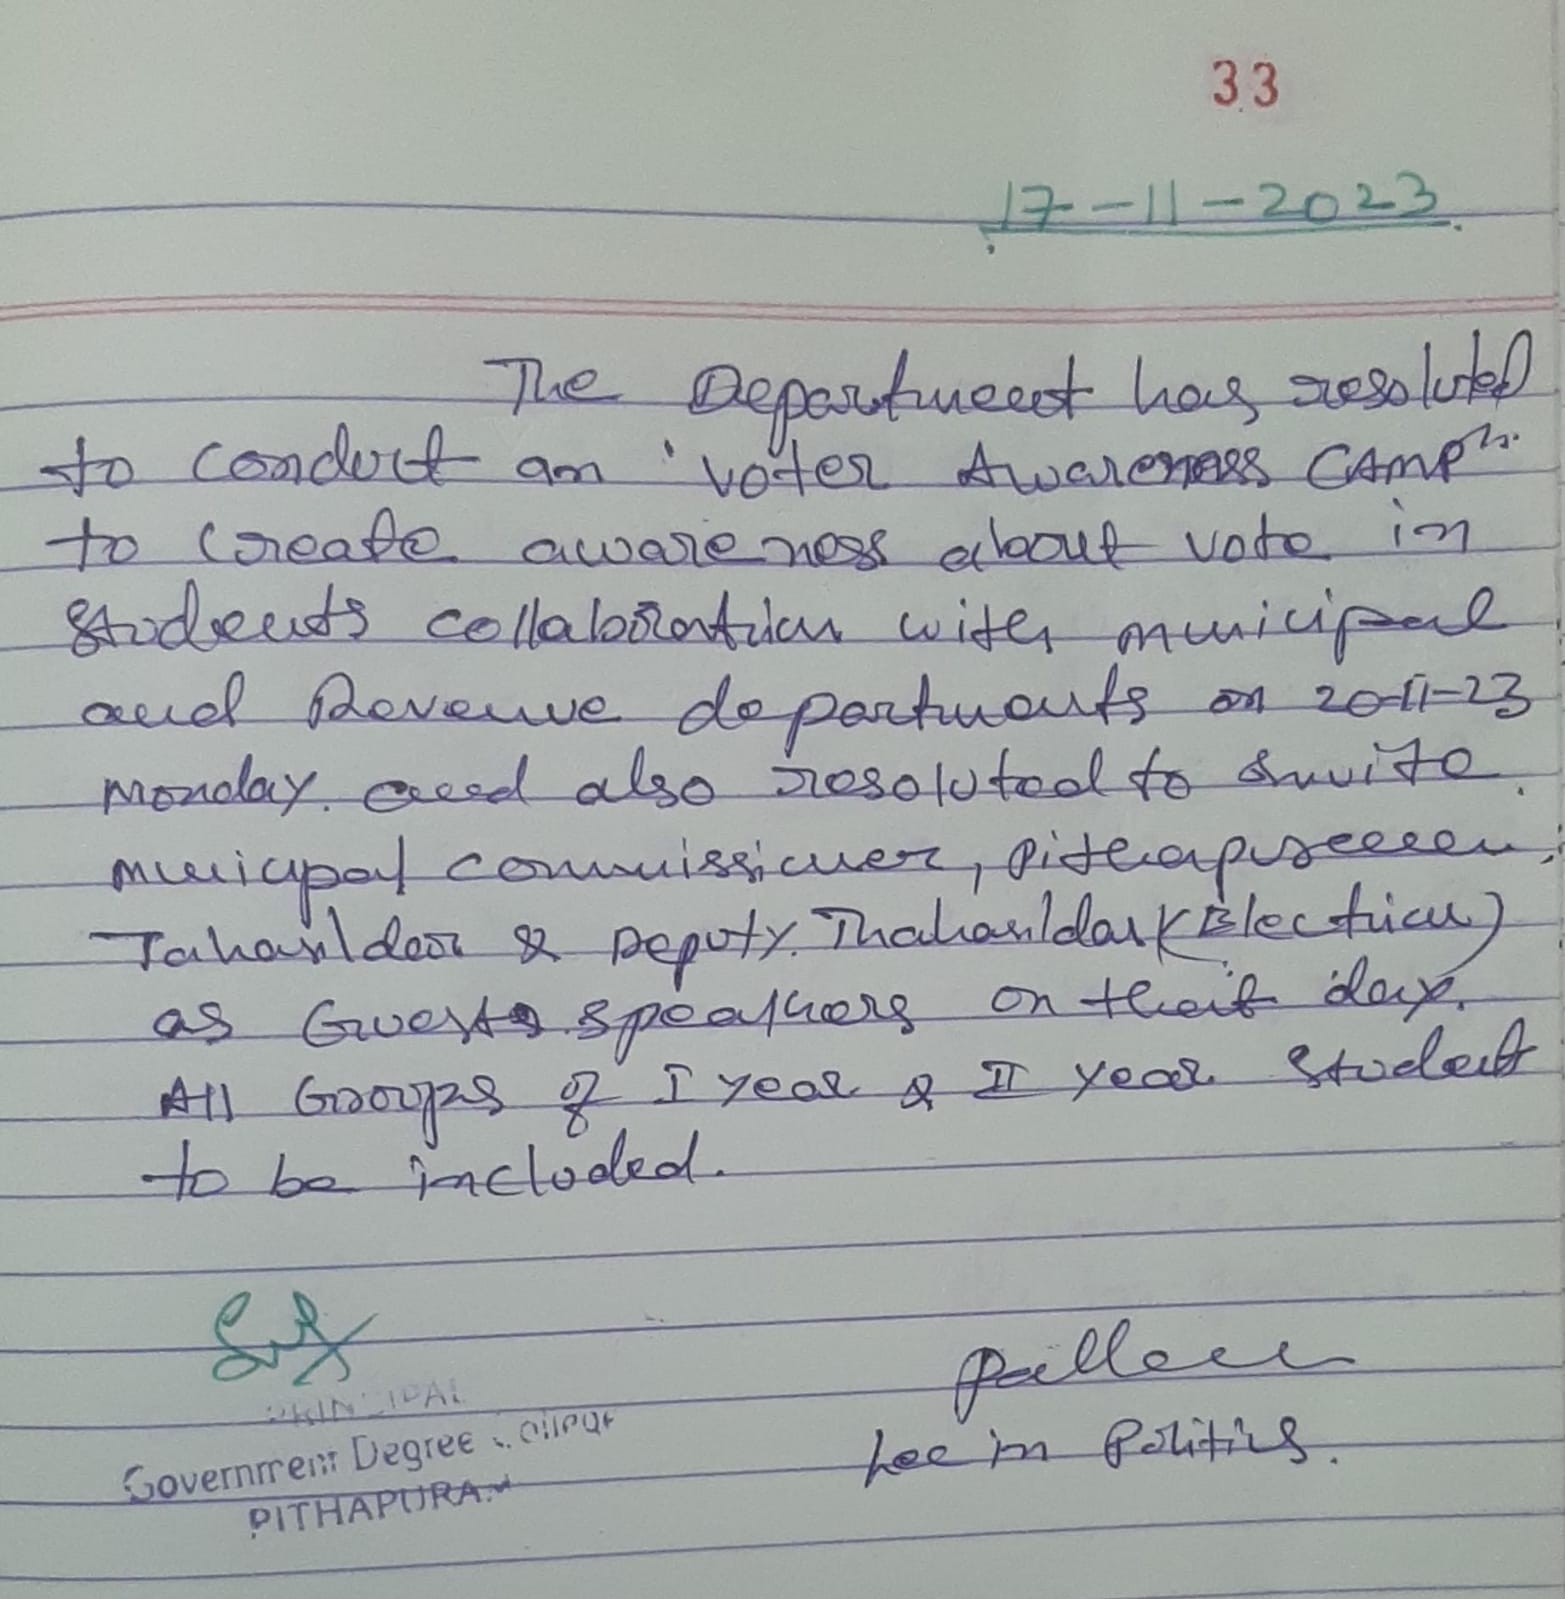 33
17-11-2023
The Department has resoluted
to conduct an 'Voter Awareness CAMP
to create awareness about vote in
students collaboration with municipal
and Revenue departments on 20-11-23
Monday. and also resoluted to invite
municipal commissioner, Pithapuram,
Tahasildar & Deputy. Thahasildar (Election)
as Guests speakers on that day.
All Groups of I year & II year student
to be included.
PRINCIPAL
Government Degree College
PITHAPURAM
Lec in Politics.